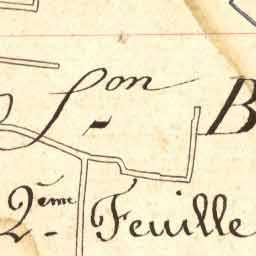 S.on B
2.ème Feuille